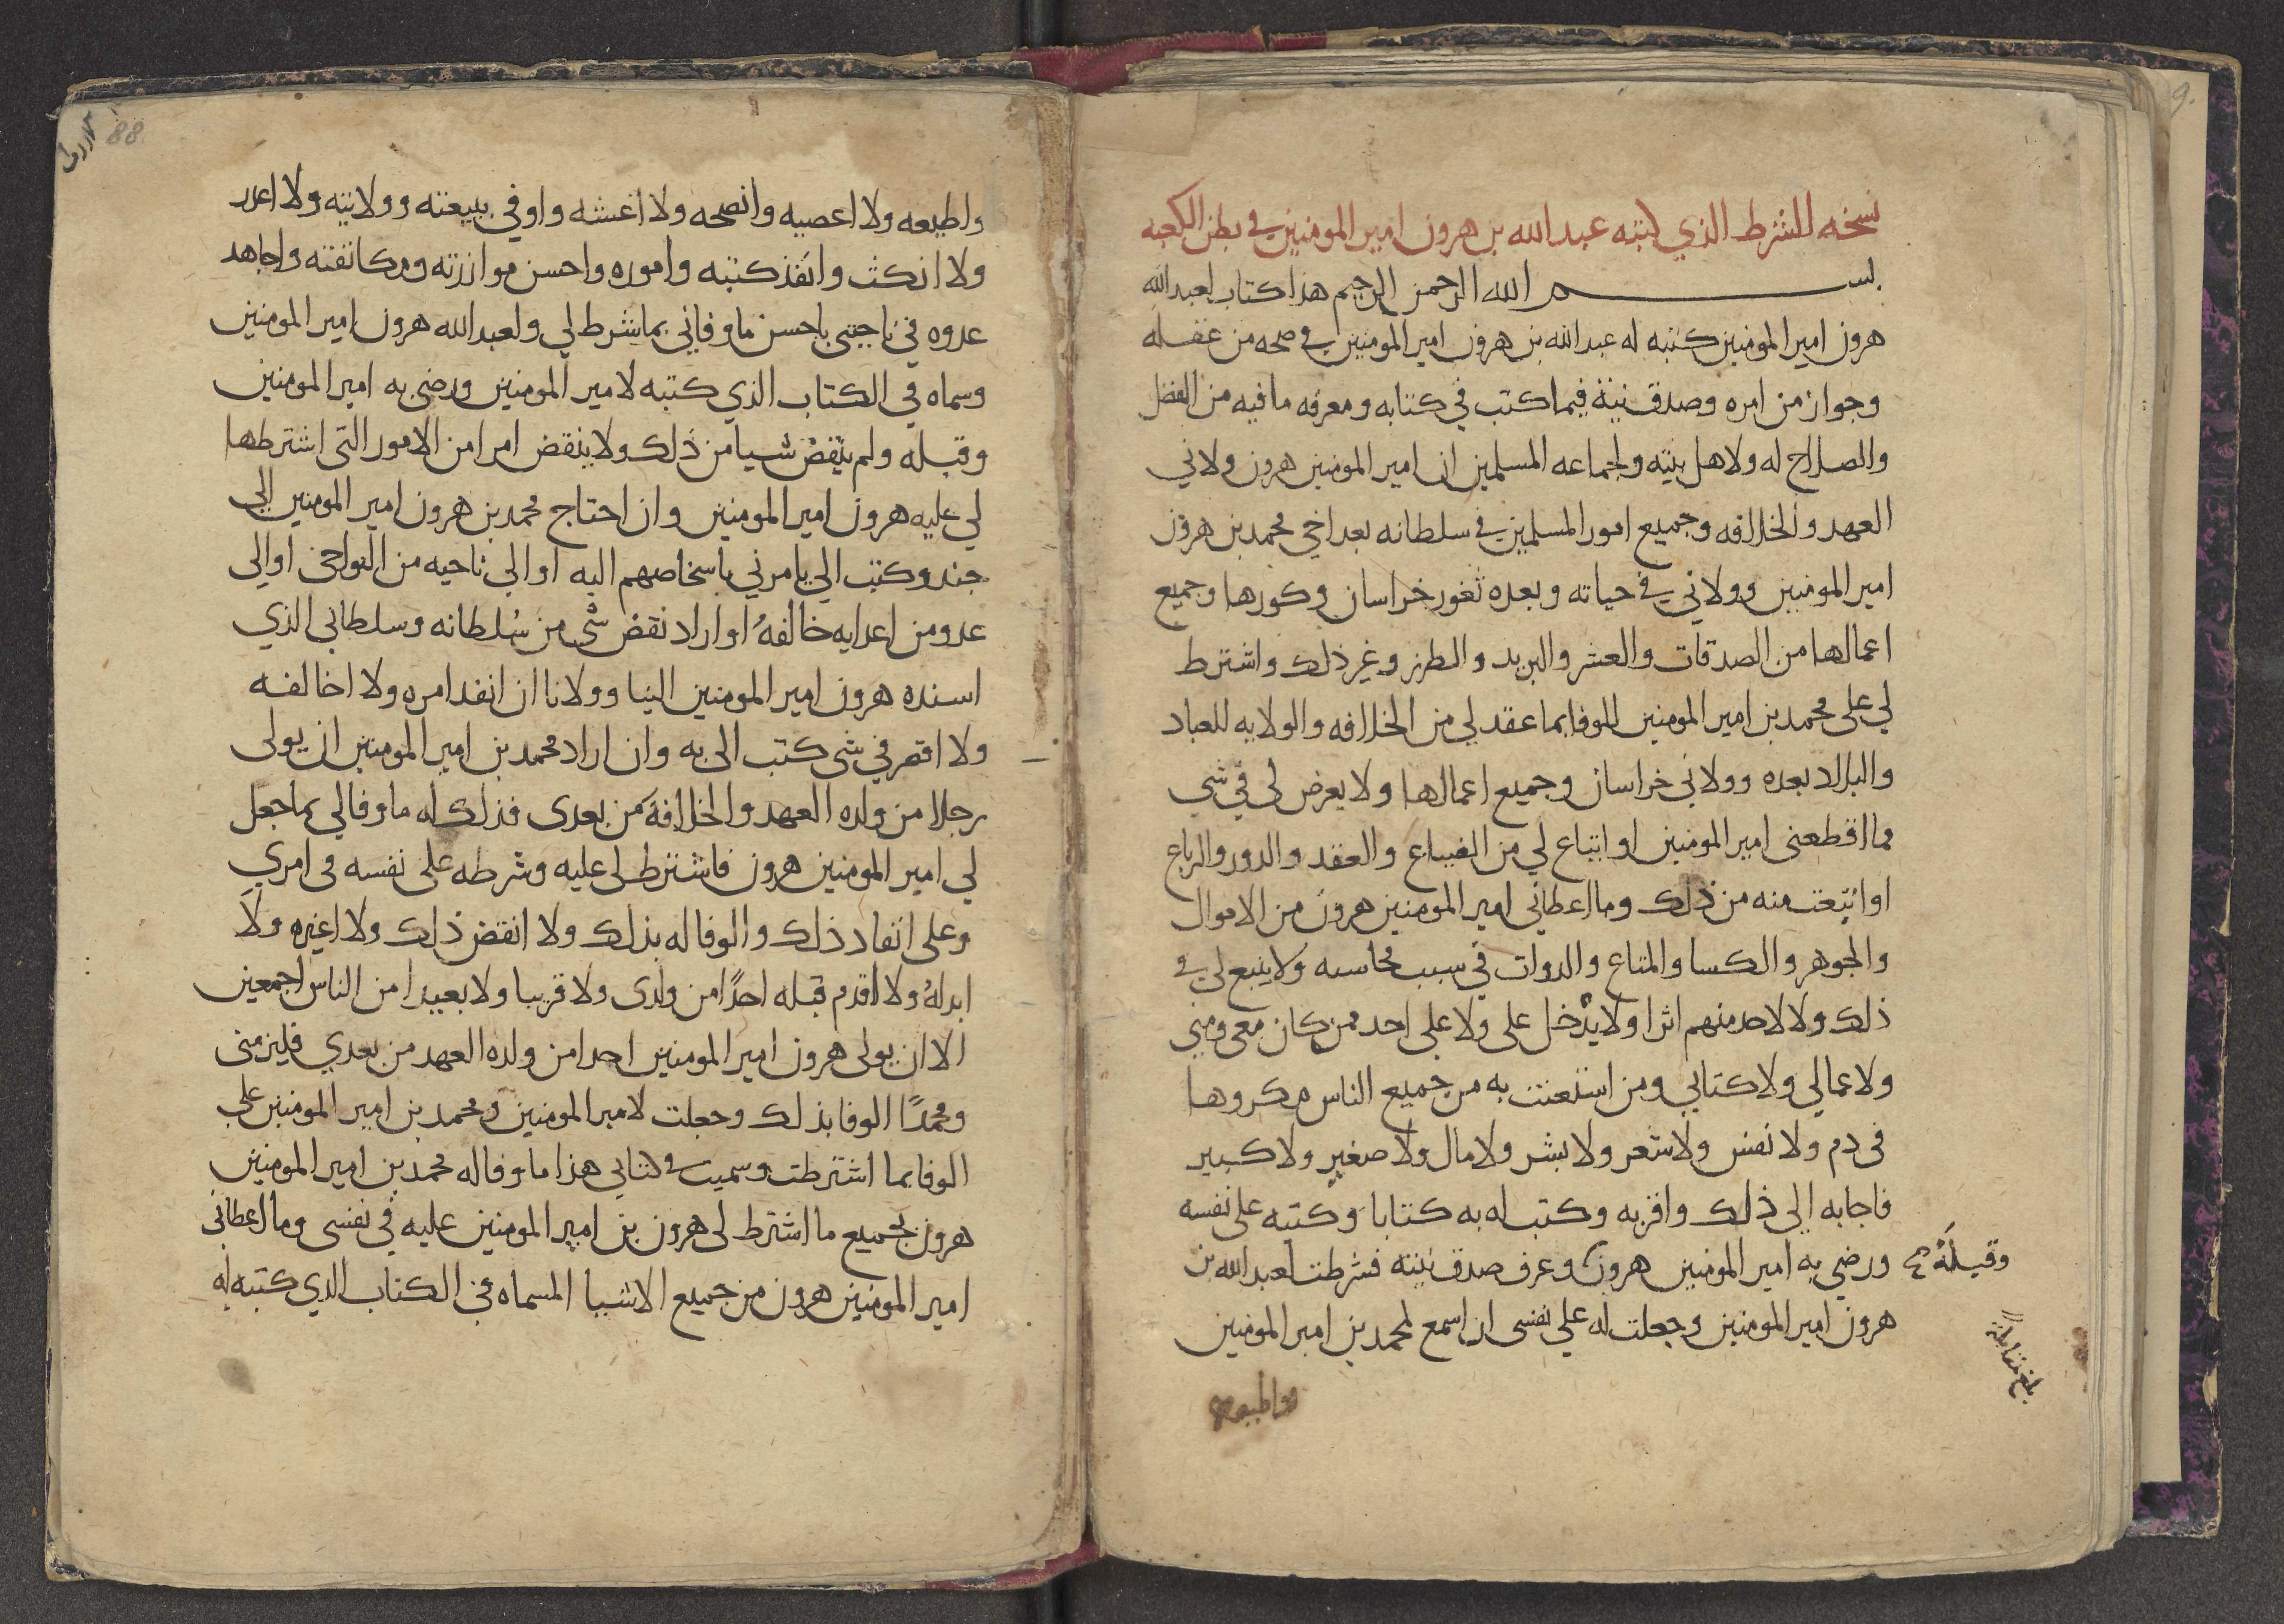 نسخه للشرط الذي كتبه عبد الله بن هرون امير المومنين في بطن الكعبه
بسم الله الرحمن الرحيم هذا كتاب لعبد الله
هرون امير المومنين كتبه له عبد الله بن هرون امير المومنين في صحه من عقله
وجواز من امره وصدق نية فيما كتب في كتابه ومعرفه ما فيه من الفضل
والصلاح له ولاهل بيته ولجماعه المسلمين ان امير المومنين هرون ولاني
العهد والخلافه وجميع امور المسلمين في سلطانه بعد اخي محمد بن هرون
امير المومنين وولاني في حياته وبعده ثغور خراسان وكورها وجميع
اعمالها من الصدقات والعشر والبريد والطرز وغير ذلك واشترط
لي على محمد بن امير المومنين للوفا بما عقد لي من الخلافه والولايه للعباد
والبلاد بعده وولاني خراسان وجميع اعمالها ولا يعرض لي في شي
مما اقطعني امير المومنين او ابتاع لي من الضياع والعقد والدور والرباع
او ابتعت منه من ذلك وما اعطاني امير المومنين هرون من الاموال
والجوهر والكسا والمتاع والدواب في سبب محاسبه ولا يتبع لي في
ذلك ولا لاحد منهم اثرا ولا يدخل علي ولا على احد ممن كان معي ومني
ولا عمالي ولا كتابي ومن استعنت به من جميع الناس مكروها
في دم ولا نفس ولا شعر ولا بشر ولا مال ولا صغير ولا كبير
فاجابه الي ذلك واقر به وكتب له به كتابا وكتبه على نفسه
ورضي به امير المومنين هرون وعرف صدق نيته فشرطت لعبد الله بن
وقبله
هرون امير المومنين وجعلت له علي نفسي ان اسمع لمحمد بن امير المومنين
بلغ مقابلة
واطيعه
88
واطيعه ولا اعصيه وانصحه ولا اغشه واوفي ببيعته وولايته ولا اغدر
ولا انكث وانفذ كتبه واموره واحسن موازرته ومكانفته واجاهد
عدوه في ناحيتي باحسن ما وفاني بما شرط لي ولعبد الله هرون امير المومنين
وسماه في الكتاب الذي كتبه لامير المومنين ورضي به امير المومنين
وقبله ولم ينقض شيا من ذلك ولا ينقض امرا من الامور التي اشترطها
لي عليه هرون امير المومنين وان احتاج محمد بن هرون امير المومنين الي
جند وكتب الي يامرني باشخاصهم اليه او الي ناحيه من النواحي او الي
عدو من اعدايه خالفه او اراد نقض شي من سلطانه وسلطاني الذي
اسنده هرون امير المومنين الينا وولانا ان انفد امره ولا اخالفه
ولا اقصر في شي كتب الي به وان اراد محمد بن امير المومنين ان يولي
رجلا من ولده العهد والخلافة من بعدي فذلك له ما وفا لي بما جعل
لي امير المومنين هرون فاشترط لي عليه وشرطه على نفسه في امري
وعلي انفاد ذلك والوفا له بذلك ولا انقض ذلك ولا اغيره ولا
ابدله ولا اقدم قبله احدا من ولدي ولا قريبا ولا بعيدا من الناس اجمعين
الا ان يولي هرون امير المومنين احدا من ولده العهد من بعدي فيلزمني
ومحمدا الوفا بذلك وجعلت لامير المومنين ومحمد بن امير المومنين علي
الوفا بما اشترطت وسميت في كتابي هذا ما وفا له محمد بن امير المومنين
هرون بجميع ما اشترط لي هرون بن امير المومنين عليه في نفسي وما اعطاني
امير المومنين هرون من جميع الاشيا المسماه في الكتاب الذي كتبه له